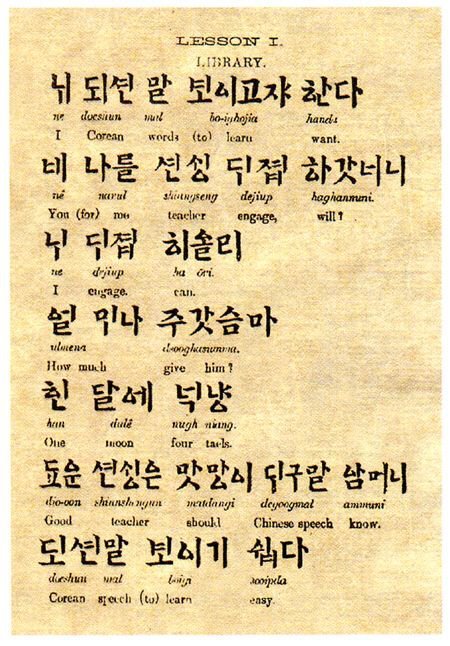 LESSON I.
LIBRARY.
ᄂᆡ 되션 말 보이고쟈 ᄒᆞᆫ다
ne doeshun mal bo-ighojia handa
I Corean words (to) learn want.
네 나를 션ᄉᆡᆼ ᄃᆡ졉 하갓너니
nê narul shiangseng dejiup haghannuni.
You (for) me teacher engage, will?
ᄂᆡ ᄃᆡ졉
ne dejiup ha ôri.
I engage. can.
얼 ᄆᆡ나 주갓슴마
ulmena dsooghasumma.
How much give him?
ᄒᆞᆫ 달에 넉냥
han dalê nugh niang.
One moon four taels.
됴운 션ᄉᆡᆼ은 맛당이 ᄃᆡ구말 암머니
dio-oon matdangi degoogmal ammuni
Good teacher should Chinese speech know.
되션말 보이기 쉽다
doeshun mal boigi sooipda
Corean speech (to) learn easy.